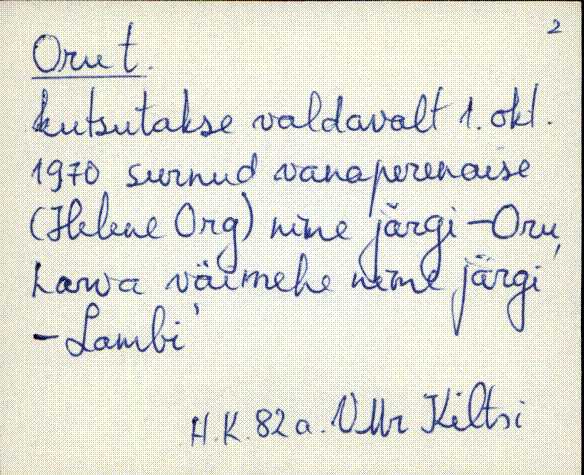 2
Oru t.
kutsutakse valdavalt 1. okt.
1970 surnud vanaperenaise
(Helene Org) nime järgi - Oru,
harva väimehe nime järgi
- Lambi
H.K. 82 a. VMr Kiltsi